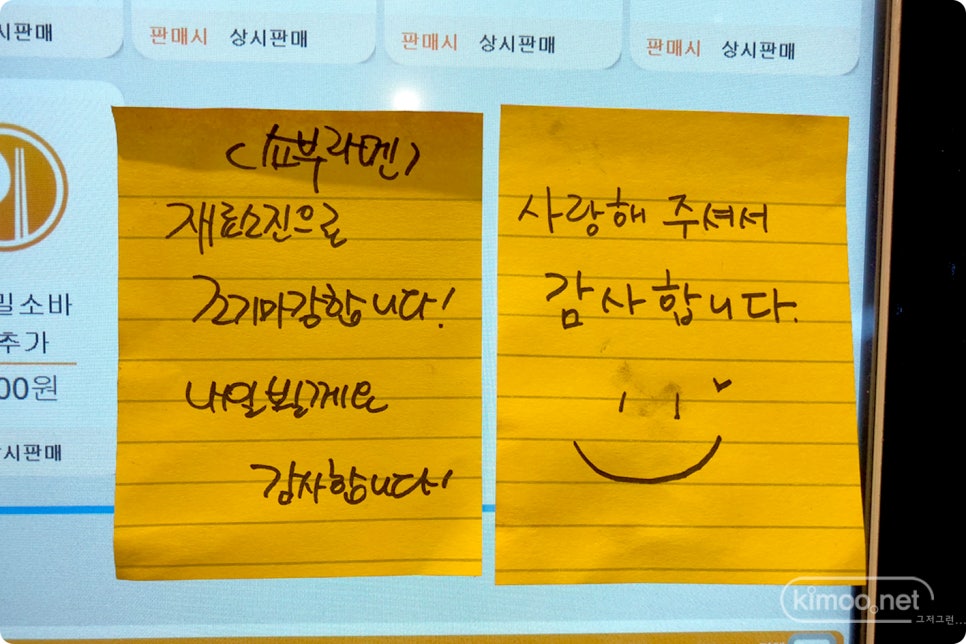 시판매
판매시 상시판매
판매시 상시판매
판매시 상시판매
밀소바
추가
00원
상시판매
<쇼부라멘>
재료소진으로
조기마감합니다!
내일뵐게요
감사합니다!
사랑해 주셔서
감사합니다.
kimoo.net
그저그런...